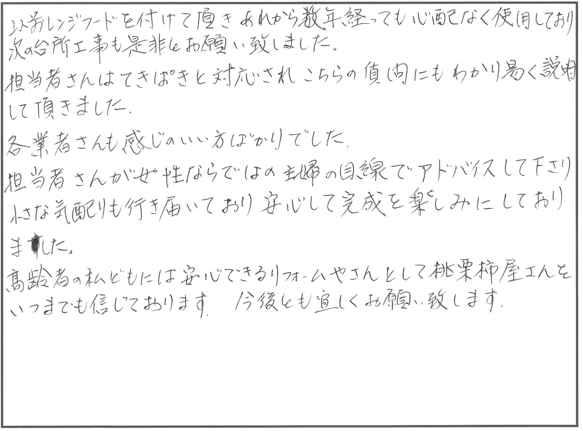 以前レンジフードを付けて頂きあれから数年経っても心配なく使用しており
次の台所工事も是非とお願い致しました。
担当者さんはてきぱきと対応され こちらの質問にもわかり易く説明
して頂きました.
各業者さんも感じのいい方ばかりでした.
担当者さんが女性ならではの主婦の目線でアドバイスして下さり
小さな気配りも行き届いており 安心して完成を楽しみにしており
ました。
高齢者の私どもには安心できるリフォームやさんとして桃栗柿屋さんを
いつまでも信じております. 今後とも宜しくお願い致します.